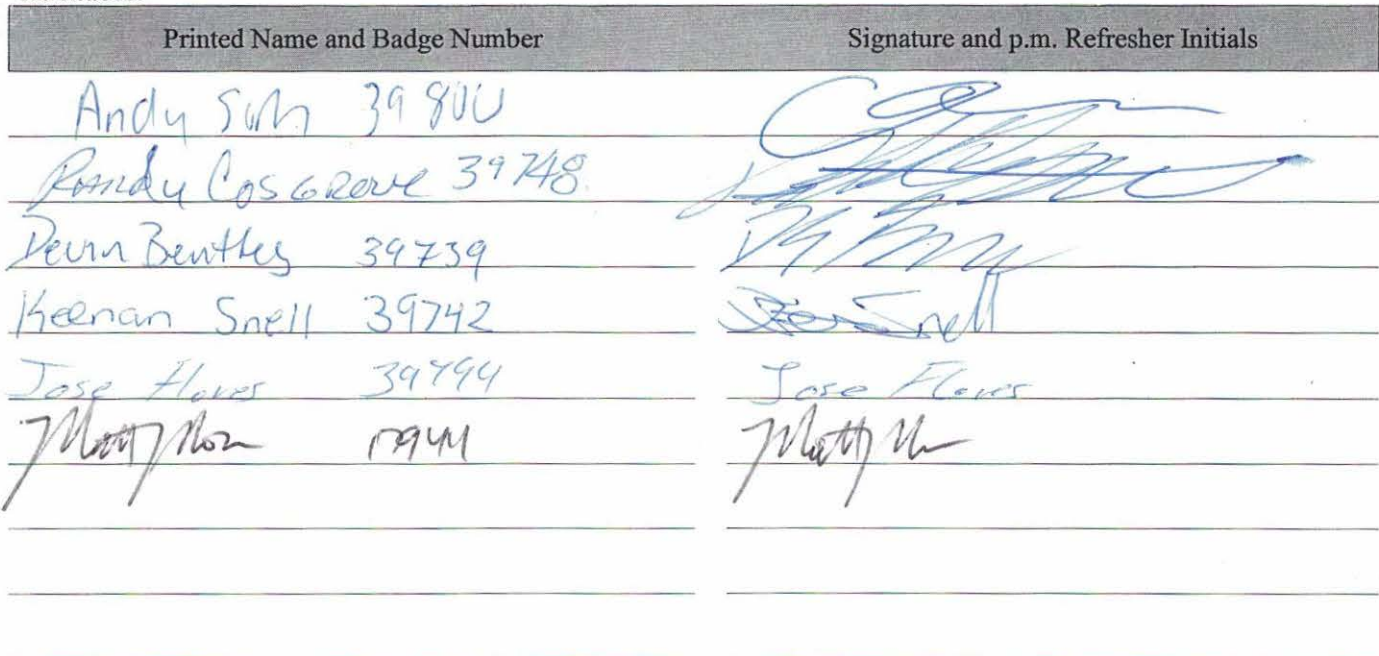 Printed Name and Badge Number Signature and p.m. Refresher Initials
Andy 39800
Randy Cosgrove 39748
Devin Bentley 39739
Keenan Snell 39742 Snell
Jose Flores Jose Flores
Matt